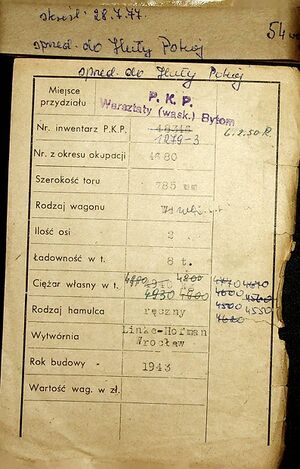 skreśl. 28.7.77.
sprzed. do Huty Pokój
54
sprzed. do Huty Pokój
Miejsce przydziału
P. K. P.
Warsztaty (wąsk.) Bytom
Nr. inwentarz P.K.P.
1279-3
6.2.50 R.
Nr. z okresu okupacji 4680
Szerokość toru 785 mm
Rodzaj wagonu
Ilość osi 2
Ładowność w t. 8 t.
Ciężar własny w t.
4880 4800 4770 4610
4930 4700 4600 4560
4500 4550
Rodzaj hamulca ręczny
Wytwórnia Linke-Hofman
Wrocław
Rok budowy - 1943
Wartość wag. w zł.